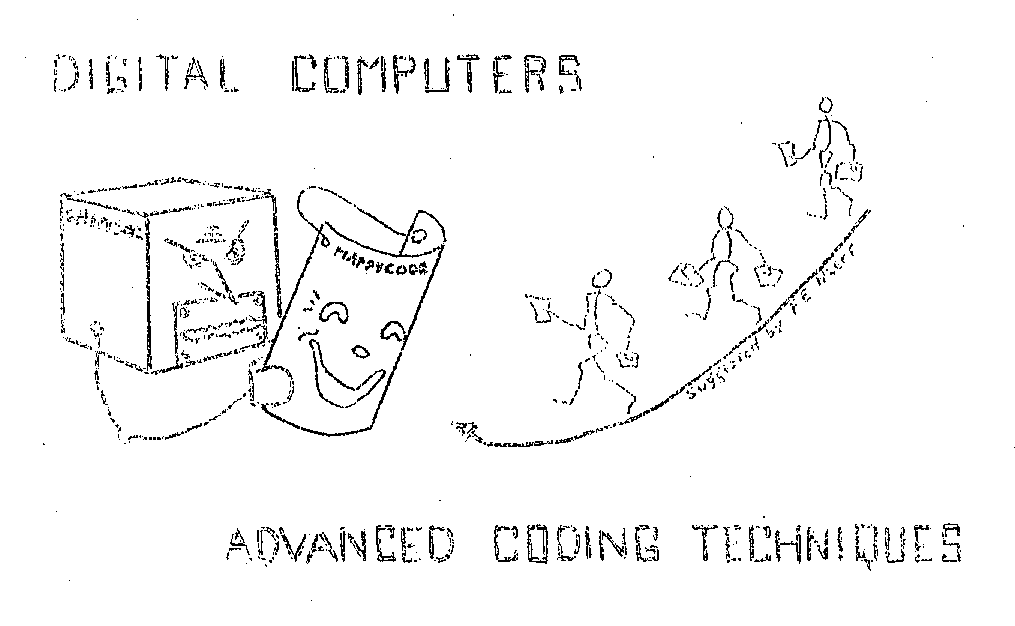 DIGITAL COMPUTERS
HAPPYCODE
by
ADVANCED CODING TECHNIQUES